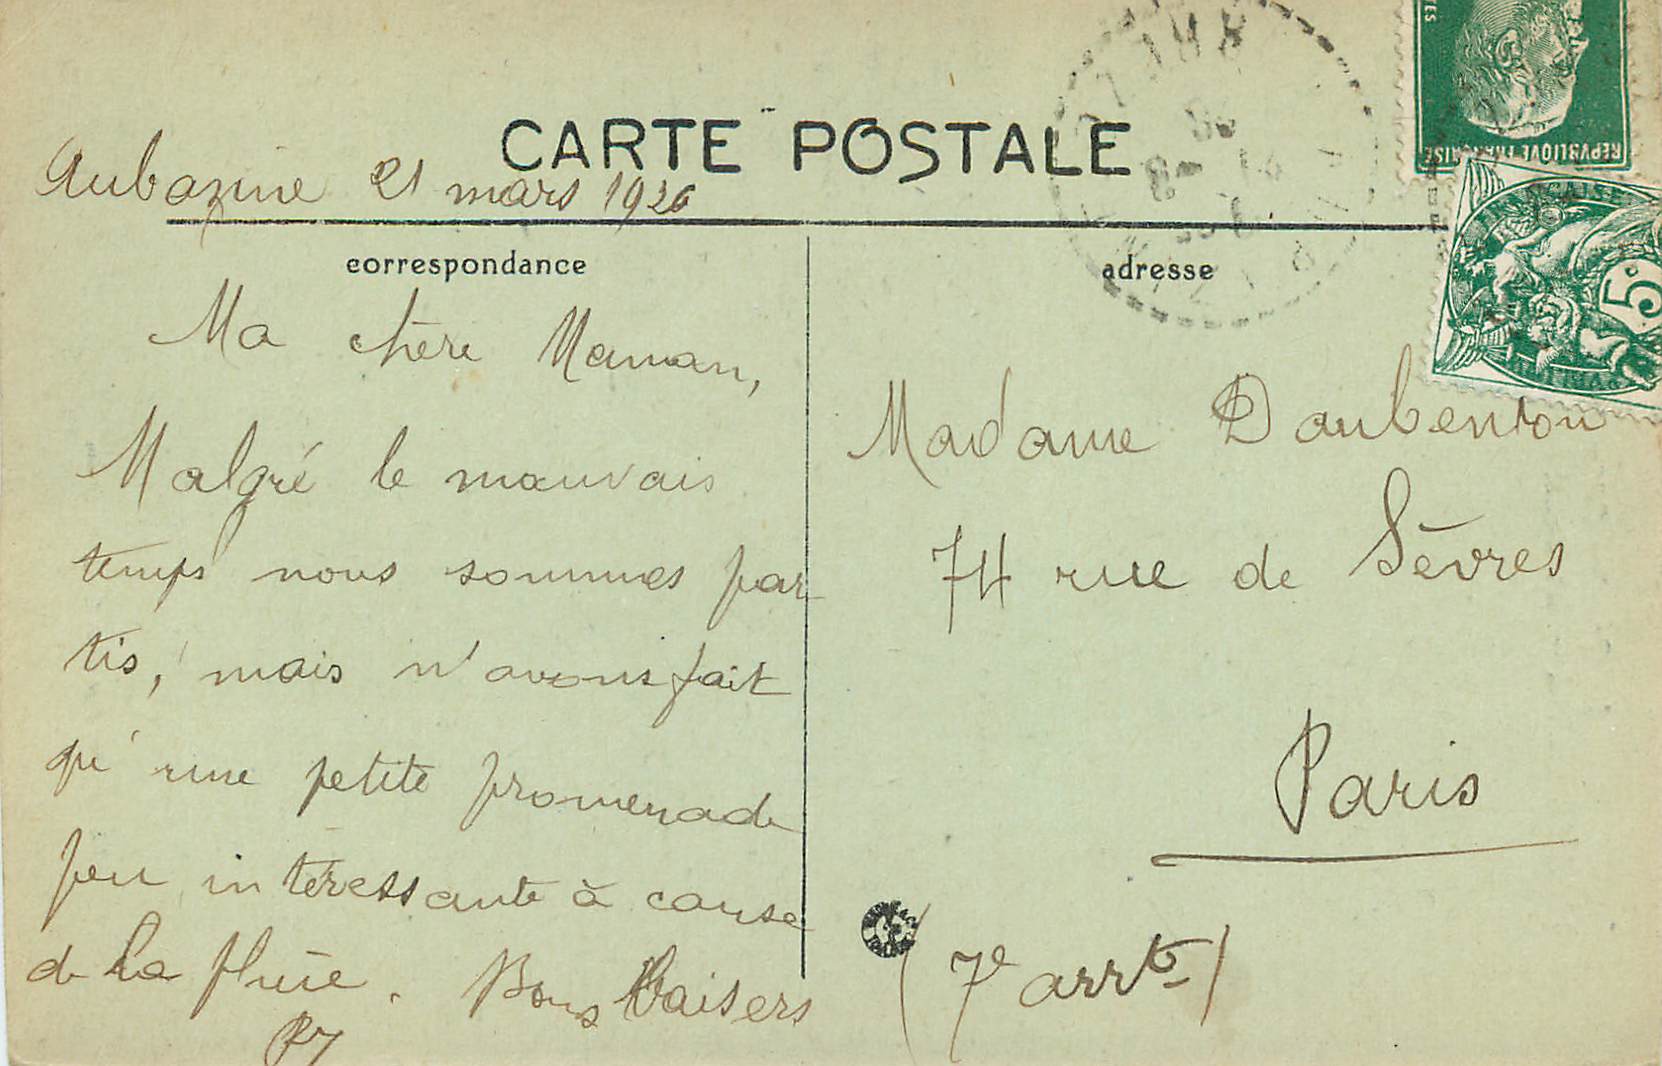 CARTE POSTALE
Aubazine 21 mars 1926
correspondance
Ma chère Maman,
Malgré le mauvais
temps nous sommes par
tis, mais n'avons fait
qu'une petite promenade
peu intéressante à cause
de la pluie. Bons Baisers
adresse
REPVBLIQVE FRANCAISE
5c
Madame Daubenton
74 rue de Sèvres
Paris
(7e arrt)